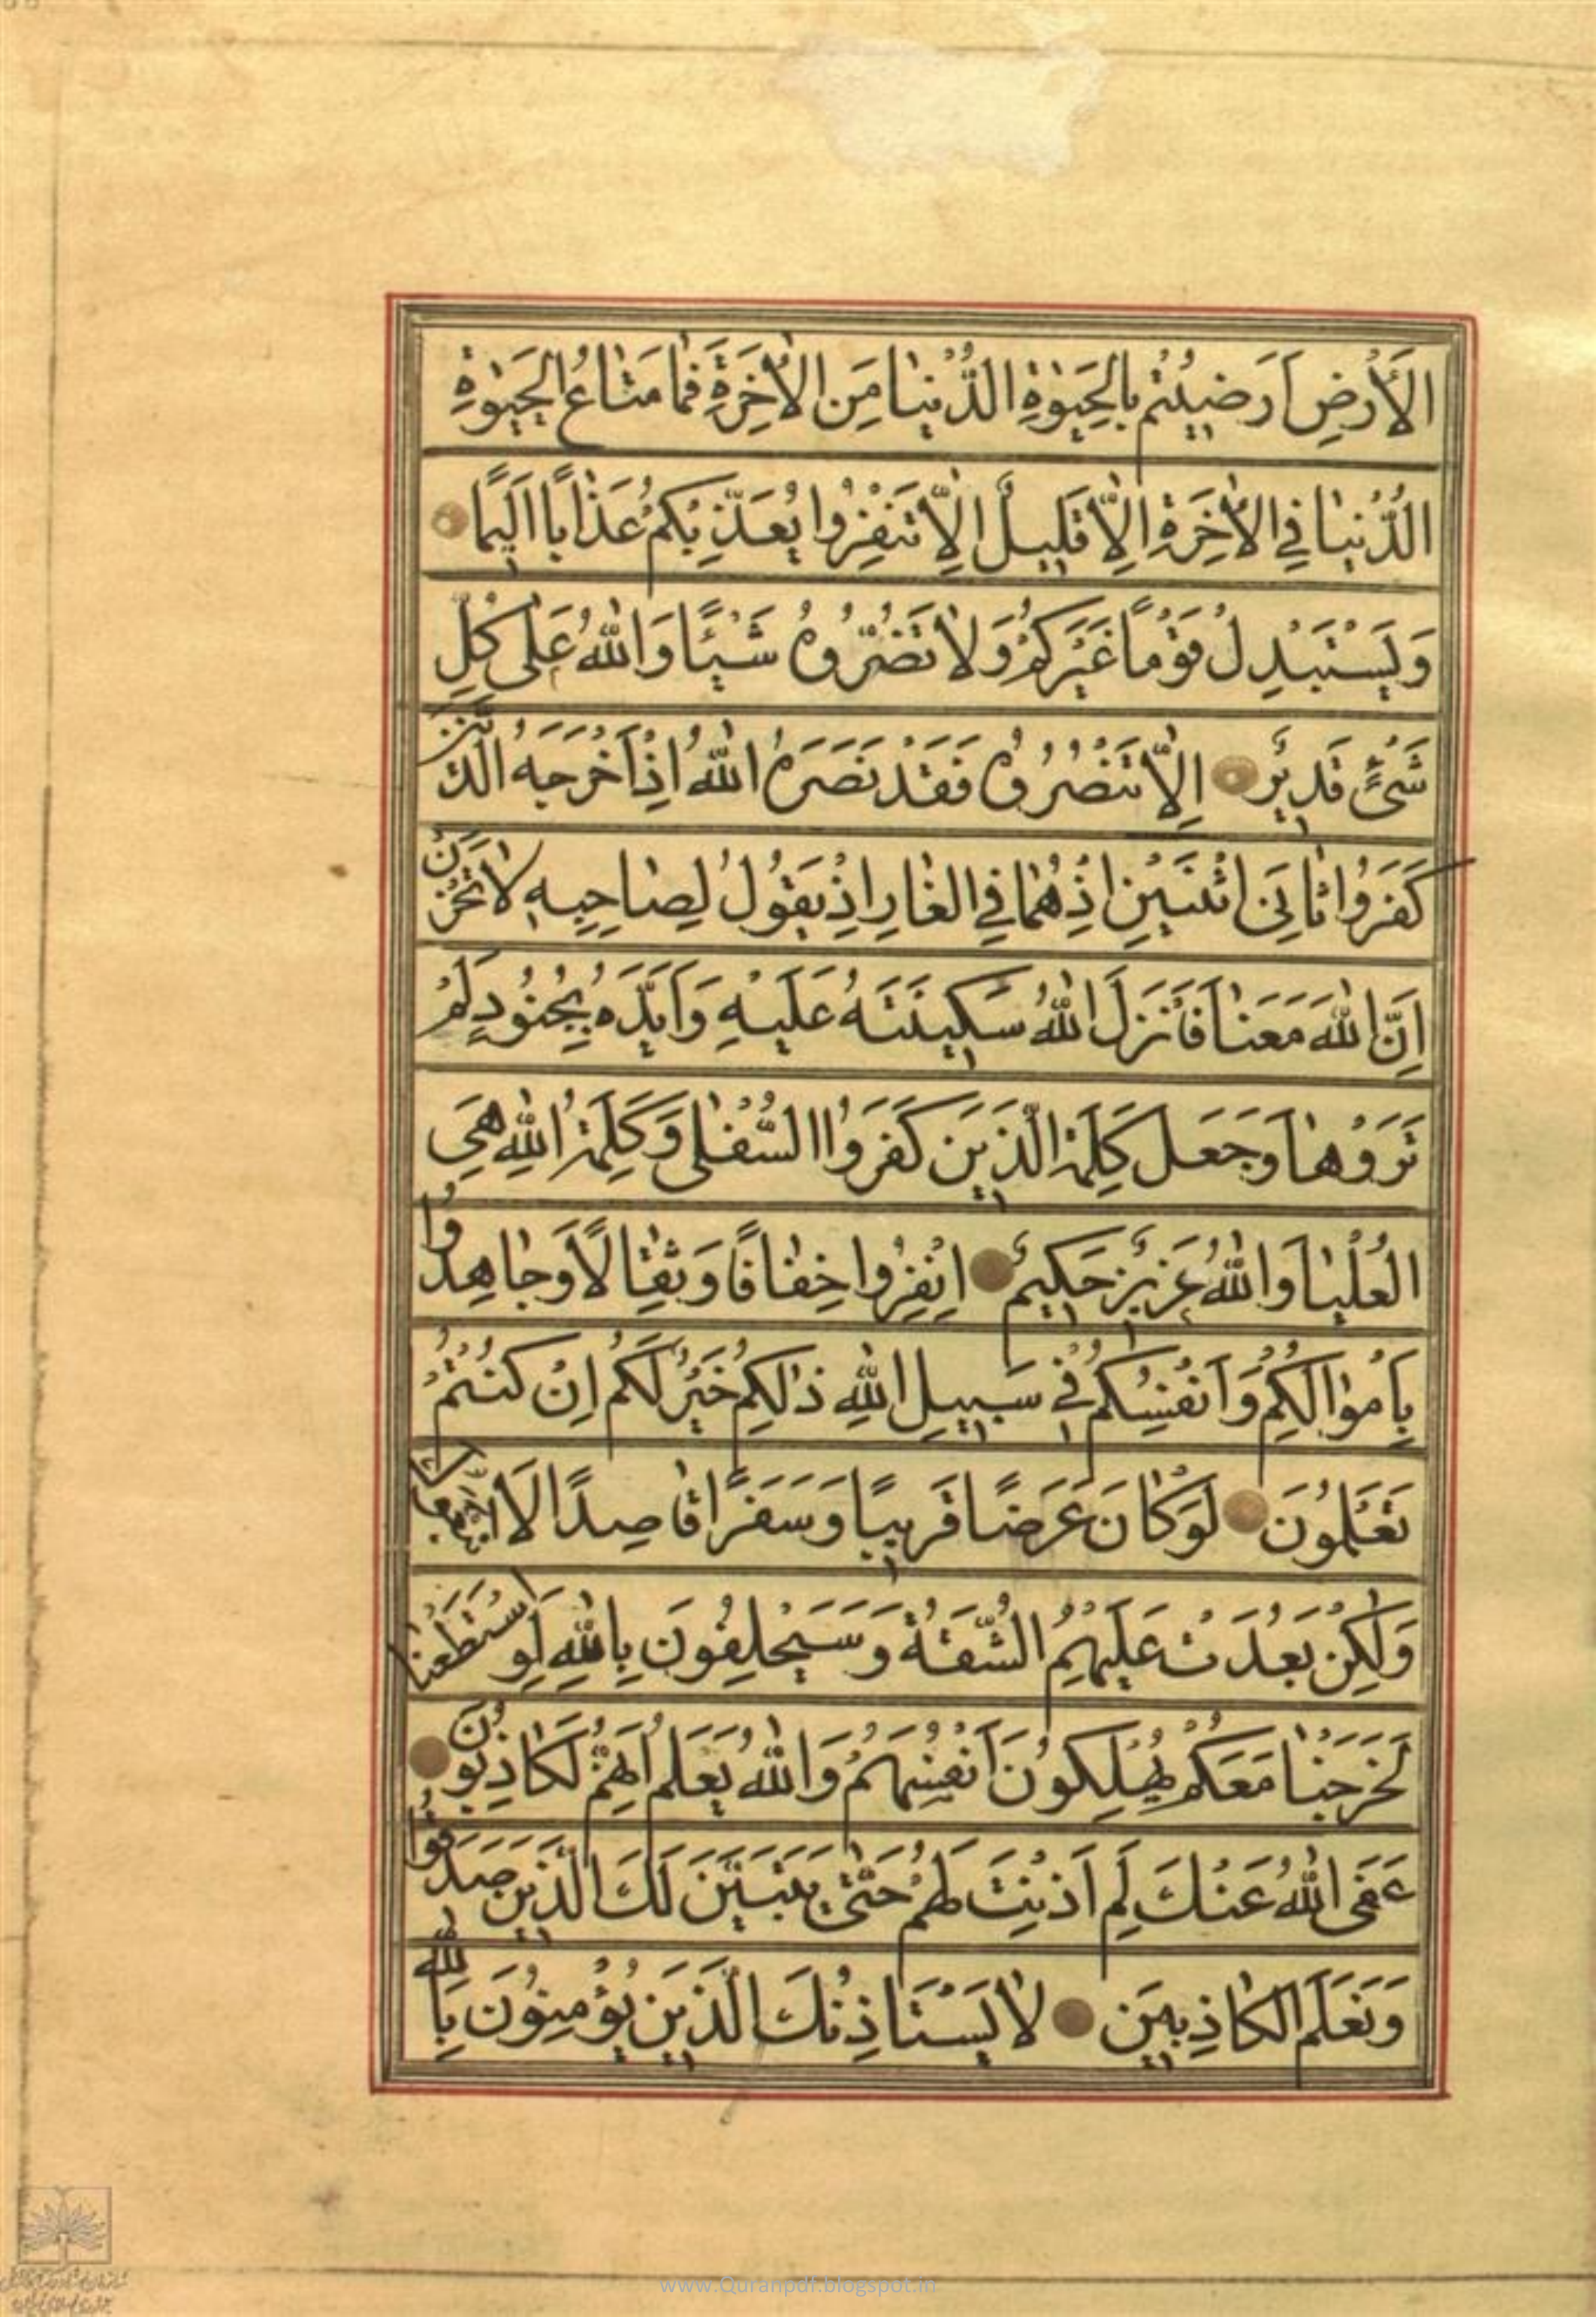 الْاَرْضِ اَرَضِيْتُمْ بِالْحَيٰوةِ الدُّنْيٰا مِنَ الْاٰخِرَةِ فَمٰا مَتٰاعُ الْحَيٰوةِ
الدُّنْيٰا فِي الْاٰخِرَةِ اِلّٰا قَلِيلٌ اِلّٰا تَنْفِرُوا يُعَذِّبْكُمْ عَذٰابًا اَلِيمًا
وَيَسْتَبْدِلْ قَوْمًا غَيْرَكُمْ وَلٰا تَضُرُّوهُ شَيْئًا وَاللّٰهُ عَلٰى كُلِّ
شَيْءٍ قَدِيرٌ اِلّٰا تَنْصُرُوهُ فَقَدْ نَصَرَهُ اللّٰهُ اِذْ اَخْرَجَهُ الَّذِينَ
كَفَرُوا ثٰانِيَ اثْنَيْنِ اِذْ هُمٰا فِي الْغٰارِ اِذْ يَقُولُ لِصٰاحِبِهِ لٰا تَحْزَنْ
اِنَّ اللّٰهَ مَعَنٰا فَاَنْزَلَ اللّٰهُ سَكِينَتَهُ عَلَيْهِ وَاَيَّدَهُ بِجُنُودٍ لَمْ
تَرَوْهٰا وَجَعَلَ كَلِمَةَ الَّذِينَ كَفَرُوا السُّفْلٰى وَكَلِمَةُ اللّٰهِ هِيَ
الْعُلْيٰا وَاللّٰهُ عَزِيزٌ حَكِيمٌ اِنْفِرُوا خِفٰافًا وَثِقٰالًا وَجٰاهِدُوا
بِاَمْوٰالِكُمْ وَاَنْفُسِكُمْ فِي سَبِيلِ اللّٰهِ ذٰلِكُمْ خَيْرٌ لَكُمْ اِنْ كُنْتُمْ
تَعْلَمُونَ لَوْ كٰانَ عَرَضًا قَرِيبًا وَسَفَرًا قٰاصِدًا لَا
وَلٰكِنْ بَعُدَتْ عَلَيْهِمُ الشُّقَّةُ وَسَيَحْلِفُونَ بِاللّٰهِ لَوِ اسْتَطَعْنٰا
لَخَرَجْنٰا مَعَكُمْ يُهْلِكُونَ اَنْفُسَهُمْ وَاللّٰهُ يَعْلَمُ اِنَّهُمْ لَكٰاذِبُونَ
عَفَى اللّٰهُ عَنْكَ لِمَ اَذِنْتَ لَهُمْ حَتّٰى يَتَبَيَّنَ لَكَ الَّذِينَ صَدَقُوا
وَتَعْلَمَ الْكٰاذِبِينَ لٰا يَسْتَاْذِنُكَ الَّذِينَ يُؤْمِنُونَ بِاللّٰهِ
www.Quranpdf.blogspot.in